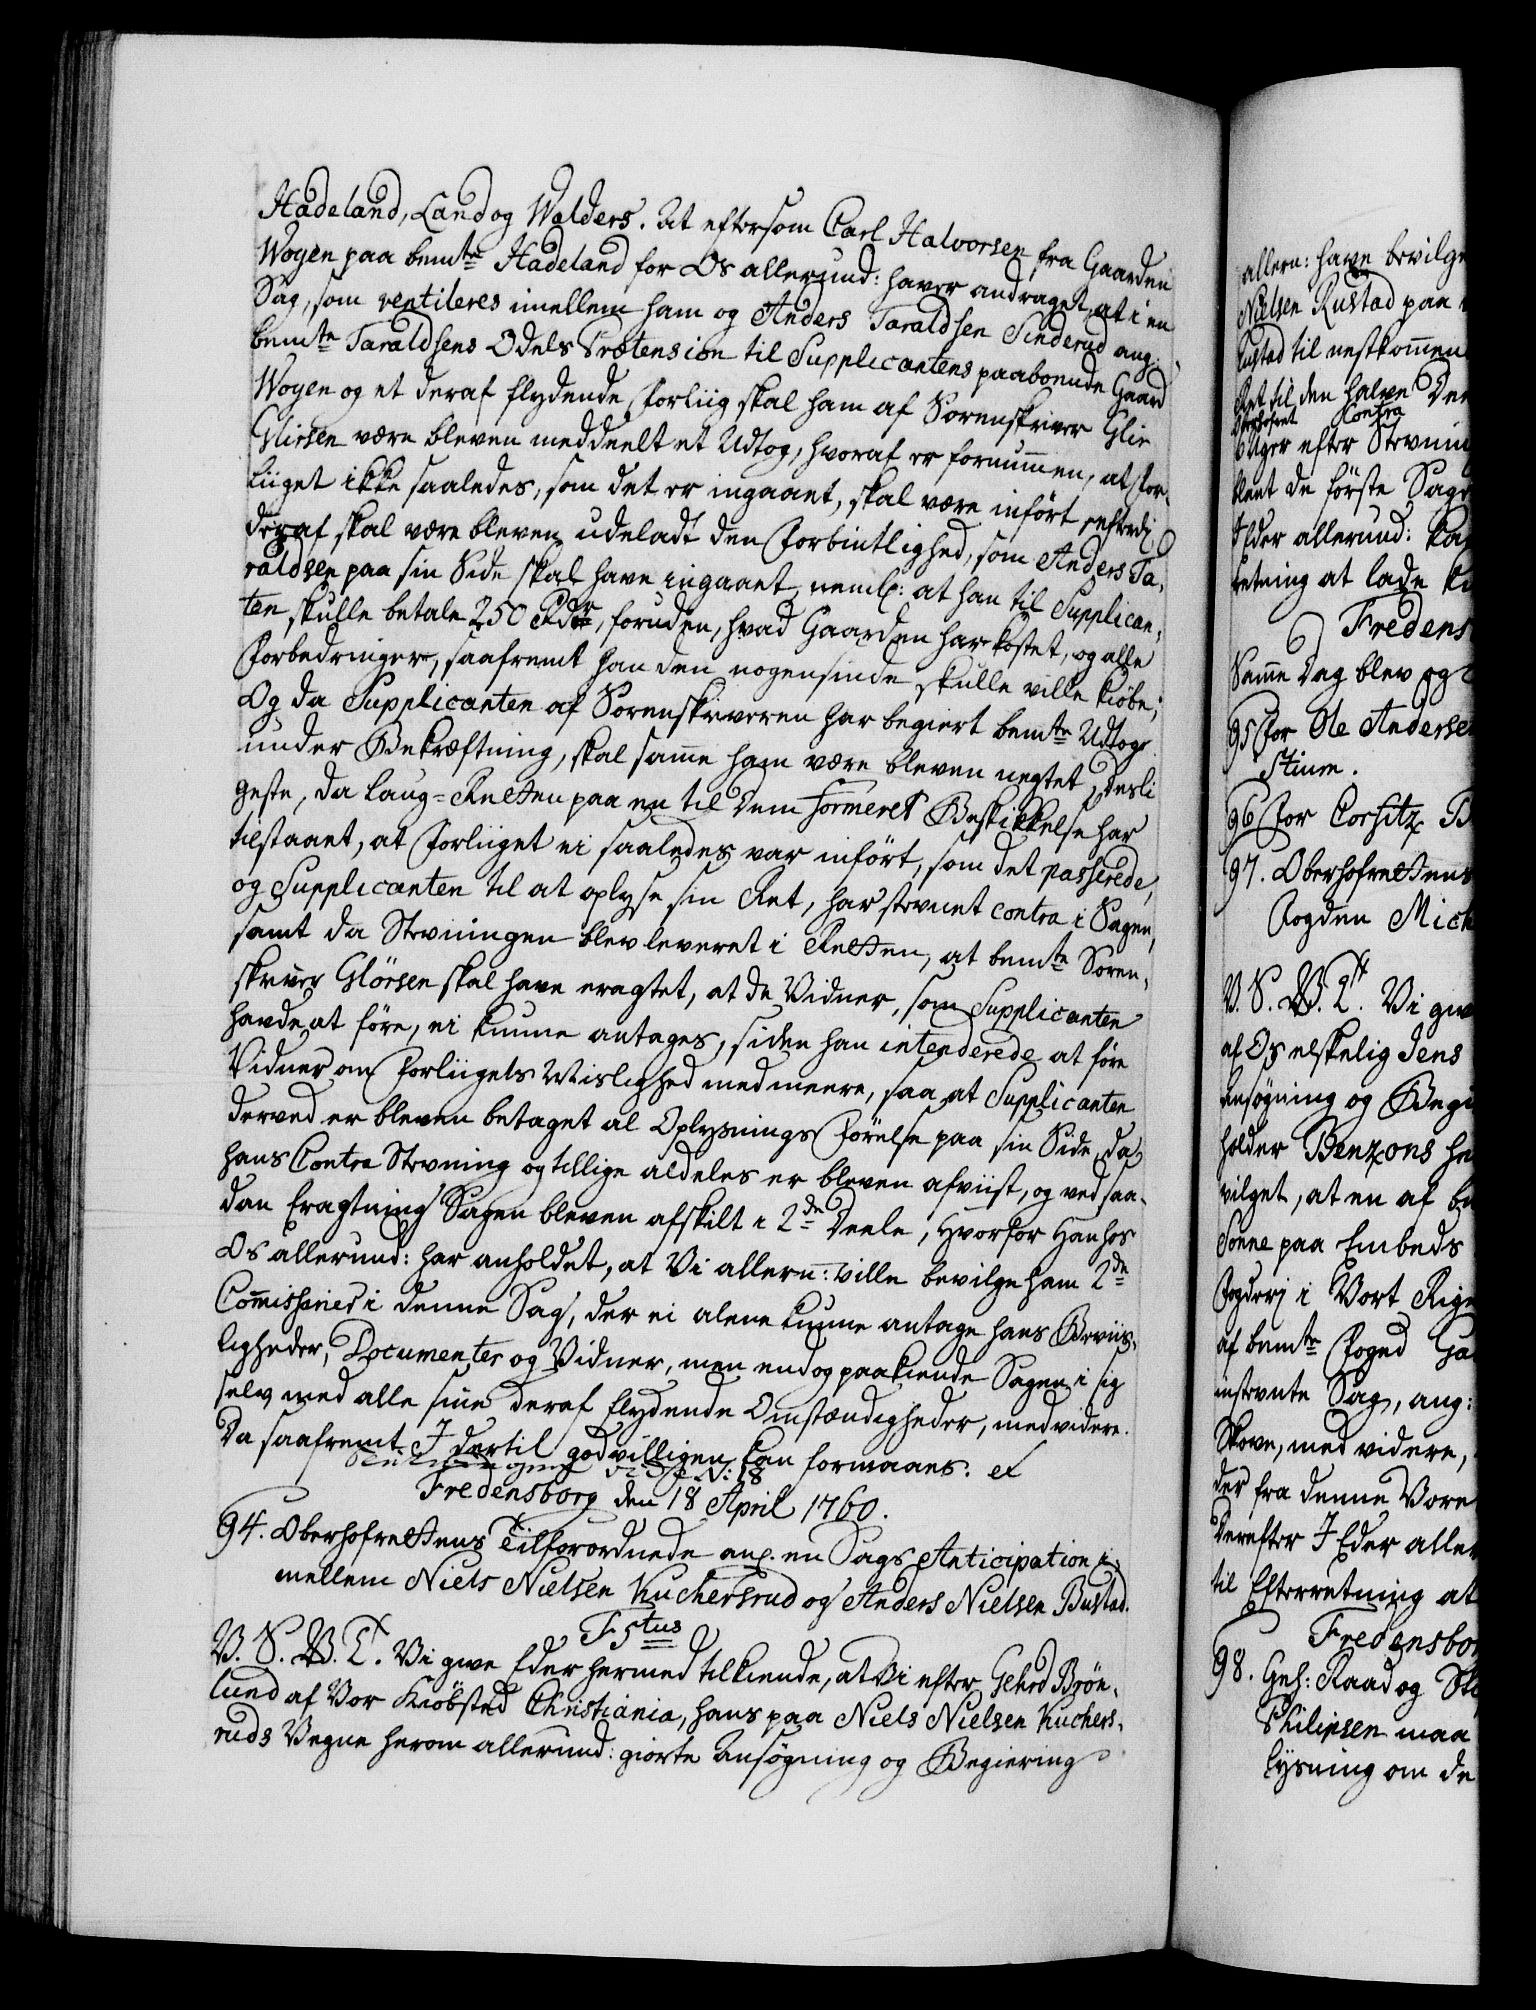 Hadeland, Land og Walders. At eftersom Carl Halvorsen fra Gaarden
Woyen paa bemte Hadeland for Os allerund: haver andraget, at i en
Sag, som ventileres imellem ham og Anders Taraldsen Sinderud ang:
bemte Taraldsens Odels Prætension til Supplicantens paaboende Gaard
Woyen og et deraf flydende Forliig skal ham af Sorenskriver Glie
være bleven meddeelt et Udtog, hvoraf er fornummen, at For-
liiget ikke saaledes, som det er ingaaet, skal være infört, efterdi
deraf skal være bleven udeladt den Forbintlighed, som Anders Ta-
raldsen paa sin Side skal have ingaaet, neml: at han til Supplican-
ten skulle betale 250 Rdr, foruden, hvad Gaarden har kostet, og alle
Forbedringer, saafremt han den nogensinde skulle ville kiöbe;
Og da Supplicanten af Sorenskriveren har begiert bemte Udtog
under Bekræftning, skal samme ham være bleven negtet, desli
geste, da Laug-Retten paa en til Dem formeret Beskikkelse har
tilstaaet, at Forliiget ei saaledes var infört, som det passerede,
og Supplicanten til at oplyse sin Ret, har stevnet contra i Sagen,
samt da Stevningen blev leveret i Retten, at bemte Soren-
skriver Glörsen skal have eragtet, at de Vidner, som Supplicanten
havde at före, ei kunne antages, siden han intenderede at före
Vidner om Forliigets Wislighed med meere, saa at Supplicanten
derved er bleven betaget al Oplysnings Förelse paa sin Side, da
hans Contra Stevning og tillige aldeles er bleven afviist, og ved saa-
dan Eragtning Sagen bleven afskilt i 2de Deele, Hvorfor Han hos
Os allerund: har anholdet, at Vi allern: ville bevilge ham 2de
Commissarier i denne Sag, der ei alene kunne antage hans Beviis-
ligheder, Documenter og Vidner, men endog paakiende Sagen i sig
selv med alle sine deraf flydende Omstændigheder, med videre.
Da saafremt I dertil godvilligen kan formaaes. et
N: 18
Fredensborg den 18 April 1760.
94. Oberhofrettens Tilforordnede anl. en Sags Anticipation i-
mellem Niels Nielsen Kuchersrud og Anders Nielsen Bustad.
F 5tus
V. S. W. T. Vi give Eder hermed tilkiende, at Vi efter Gehrd Brön-
lund af Vor Kiöbsted Christiania, hans paa Niels Nielsen Kuchers-
ruds Vegne herom allerund: giorte Ansögning og Begiering
allern: have bevilge
Nielsen Rustad paa
Rustad til nestkommen
Ret til den halve
Oberhofret Contra
Uger efter Stevnin
de förste Sag
I Eder allerund:
retning at lade
Fredens
Samme Dag blev og
95 For Ole Anderse
Stinn.
96 For Corfitz B
97. Oberhofrettens
Fogden Mich
V. S. W. T. Vi give
af Os elskelig Jens
Ansögning og Begi
holder Benzons he
vilget, at en af be
Sonne paa Embeds
Fogderi i Vort Rige
af bemte Foged Ga
instevnte Sag, ang:
Skove, med videre,
der fra denne Vore
Derefter I Eder aller
til Efterretning at
Fredensbor
98. Geh: Raad og St
Philipsen maa
lysning om de